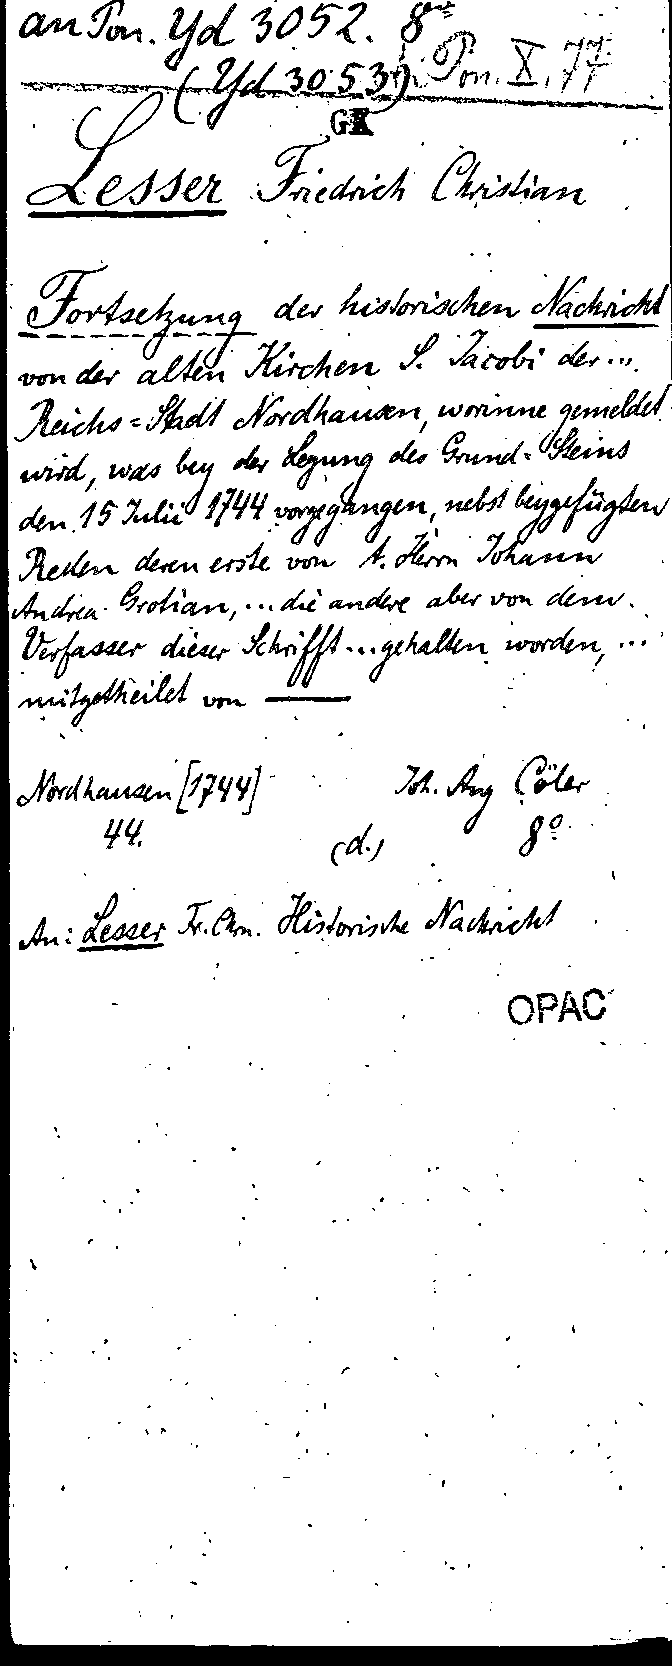 an Pon. Yd 3052. 8°
(Yd 3053). Pon. X. 77
GK
Lesser Friedrich Christian
Fortsetzung der historischen Nachricht
von der alten Kirchen S. Jacobi der ...
Reichs=Stadt Nordhausen, worinne gemeldet
wird, was bey der Legung des Grund=Steins
den 15 Julii 1744 vorgegangen, nebst beygefügten
Reden deren erste von t. Herrn Johann
Andrea Grotian, ... die andere aber von dem
Verfasser dieser Schrifft ... gehalten worden, ...
mitgetheilet von ——
Nordhausen [1744] Joh. Aug Cöler
44. (d.) 8°
An: Lesser Fr. Chrn. Historische Nachricht
OPAC